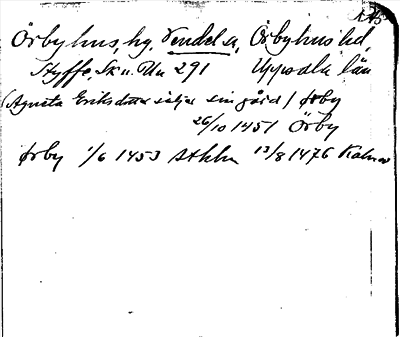 Örbyhus, hg, Vendel s, Örbyhus hd,
Styffe, Sk u. Un 291 Uppsala län
(Agneta Eriksdotter säljer sin gård) Ørby
26/10 1451 Örby
Ørby 1/6 1453 Sthlm 13/8 1476 Kalmar